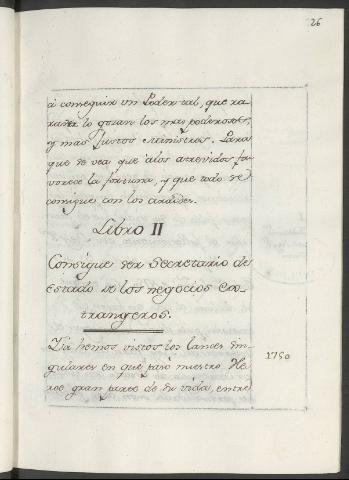 26
á conseguir un Poder tal, que ra-
ra vez lo gozan los mas poderosos,
y mas Justos Ministros. Para
que se vea que álos atrevidos fa-
vorece la fortuna, y que todo se
consigue con los ardides.
Libro II
Consigue ser Secretario de
estado de los negocios Ex-
trangeros.
Ya hemos vistos los lances sin-
gulares en que pasó nuestro He-
roe gran parte de su vida, entre
1750